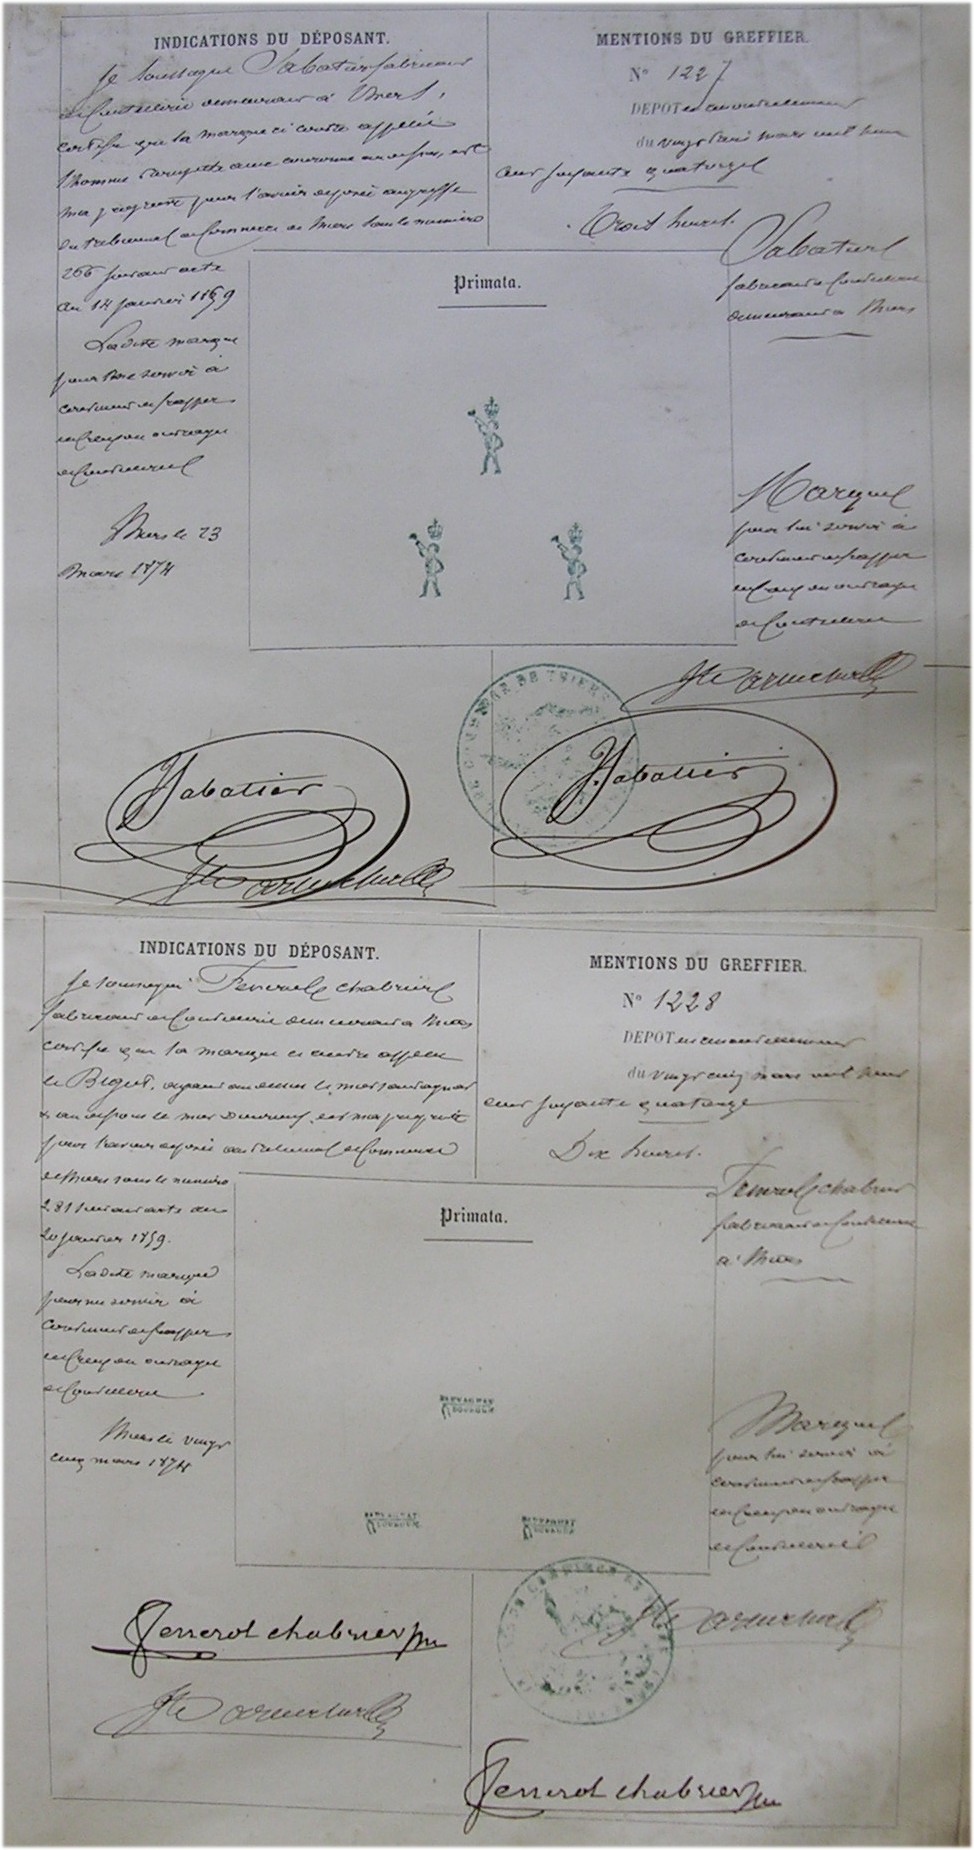 INDICATIONS DU DÉPOSANT.
Je soussigné Sabatier fabricant
de Coutellerie demeurant à Thiers,
certifie que la marque ci contre appelée
l'homme trompette avec couronne au dessus, est
ma propriété pour l'avoir déposé au greffe
du tribunal de Commerce de Thiers sous le numéro
266 suivant acte
du 14 janvier 1859
Ladite marque
pour me servir à
continuer de frapper
en Creux mon ouvrage
de Coutellerie
Thiers le 23
Mars 1874
MENTIONS DU GREFFIER.
N° 1227
DEPOT en renouvellement
du vingt trois mars mil huit
cent soixante quatorze
Trois heures.
Sabatier
fabricant de Coutellerie
demeurant à Thiers
Primata.
Marque
pour lui servir à
continuer de frapper
en Creux son ouvrage
de Coutellerie
J Sabatier
J. Sabatier
INDICATIONS DU DÉPOSANT.
Je soussigné Ferrerol Chabrier
fabricant de Coutellerie demeurant à Thiers
certifie que la marque ci contre appelée
le Bigot, ayant au dessus le mot
& au dessous le mot est ma propriété
pour l'avoir déposé au tribunal de Commerce
de Thiers sous le numéro
281 suivant acte du
20 janvier 1859.
Ladite marque
pour me servir à
continuer de frapper
en Creux mon ouvrage
de Coutellerie
Thiers le vingt
cinq mars 1874
MENTIONS DU GREFFIER.
N° 1228
DEPOT en renouvellement
du vingt cinq mars mil huit
cent soixante quatorze
Dix heures.
Ferrerol chabrier
fabricant de Coutellerie
à Thiers
Primata.
Marque
pour lui servir à
continuer de frapper
en Creux son ouvrage
de Coutellerie
Ferrerol chabrier
Ferrerol chabrier